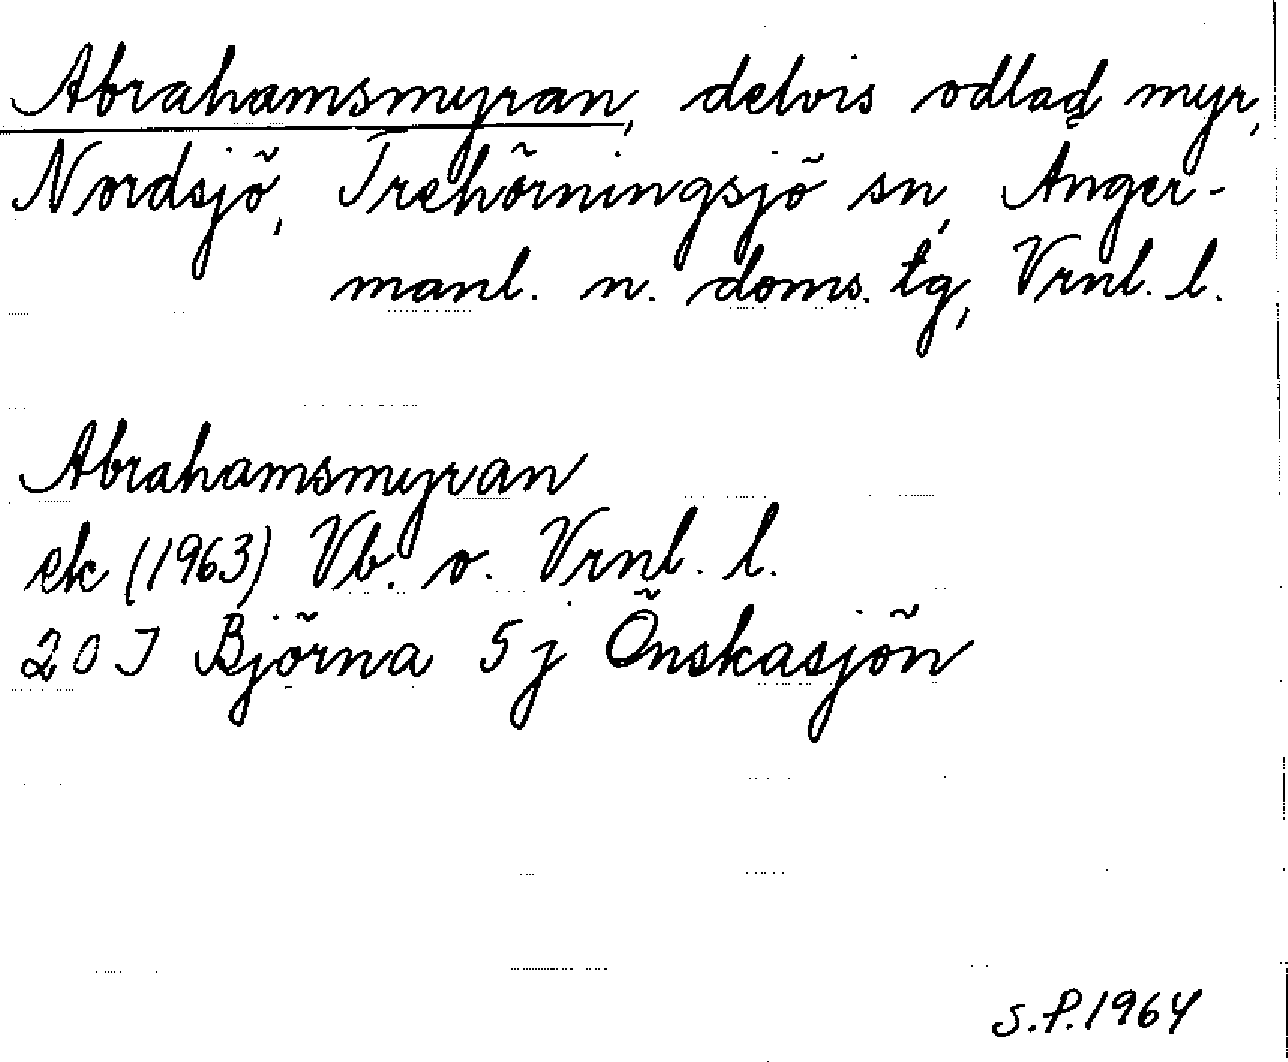 Abrahamsmyran, delvis odlad myr,
Nordsjö, Trehörningsjö sn, Ånger-
manl. n. doms. tg, Vrnl. l.
Abrahamsmyran
ek (1963) Vb. o. Vrnl. l.
20 J Björna 5 j Önskasjön
S.P. 1964